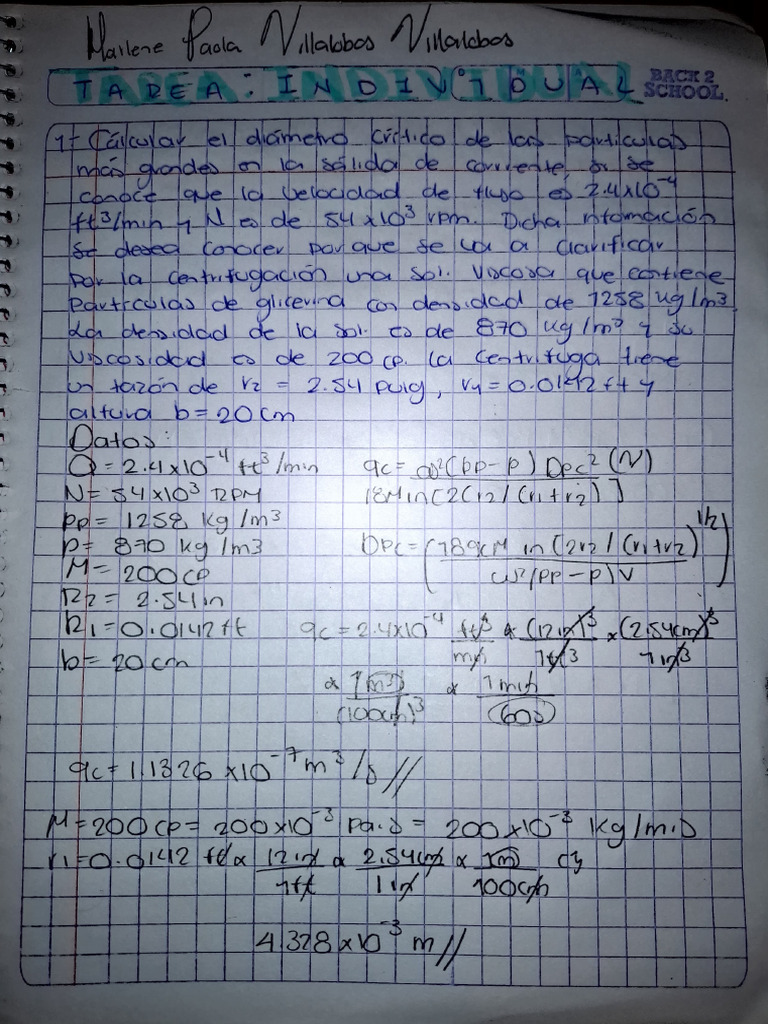 Marlene Paola Villalobos Villalobos
TAREA: INDIVIDUAL
BACK 2
SCHOOL.
1- Cálcular el diámetro crítico de las partículas
más grandes en la sálida de corriente, si se
conoce que la velocidad de flujo es 2.4x10⁻⁴
ft³/min y N es de 54x10³ rpm. Dicha nformación
se desea conocer por que se va a clarificar
por la centrifugación una sol. viscosa que contiene
Partículas de glicerina con densidad de 1258 kg/m3
La densidad de la sol. es de 870 kg/m³ y su
viscosidad es de 200 cp. la centrífuga tiene
un tazón de r2 = 2.54 pulg, r1 = 0.0142 ft y
altura b = 20 cm
Datos:
Q = 2.4x10⁻⁴ ft³/min
qc = ω²(ρp-ρ) Dpc² (V) / 18μ ln [2(r2 / (r1 + r2)]
N = 54x10³ RPM
ρp = 1258 kg/m³
ρ = 870 kg/m3
Dpc = (18qcμ ln (2r2 / (r1+r2) / ω²(ρp-ρ)V)^1/2
μ = 200 cp
R2 = 2.54 in
R1 = 0.0142 ft
qc = 2.4x10⁻⁴ ft³/min x (12 in)³/1ft3 x (2.54cm)³/1in3
b = 20 cm
x 1m3/(100cm)³ x 1min/60s
qc = 1.1326 x10⁻⁷ m³/s //
μ = 200 cp = 200x10⁻³ Pa.s = 200x10⁻³ kg/m.s
r1 = 0.0142 ft x 12 in/1ft x 2.54cm/1in x 1m/100cm
4.328 x 10⁻³ m //